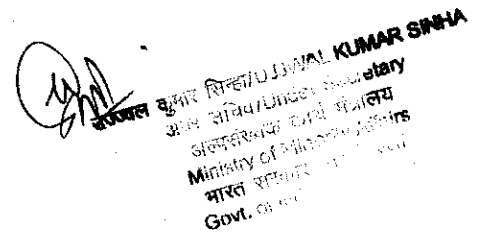 उज्ज्वल कुमार सिन्हा/UJJWAL KUMAR SINHA
अवर सचिव/Under Secretary
अल्पसंख्यक कार्य मंत्रालय
Ministry of Minority Affairs
भारत सरकार
Govt. of